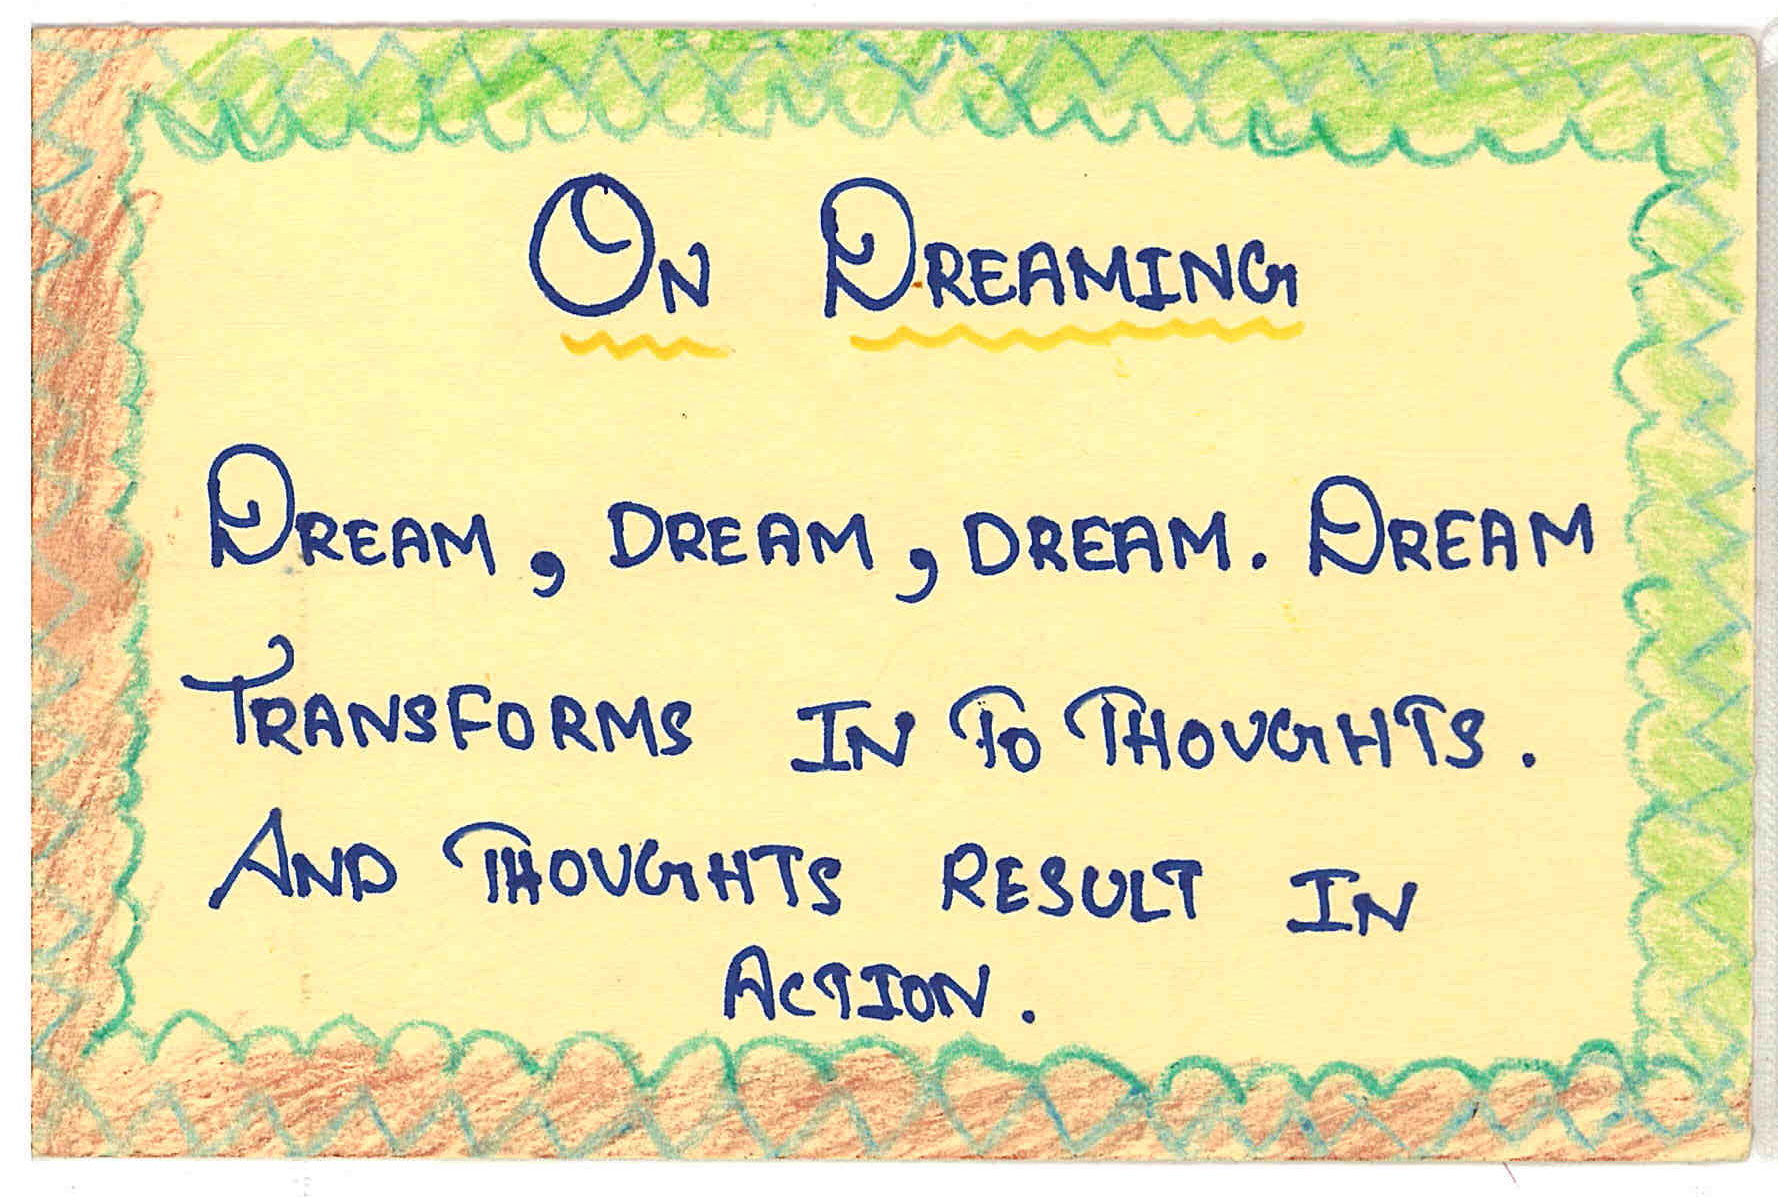 ON DREAMING
DREAM, DREAM, DREAM. DREAM
TRANSFORMS IN TO THOUGHTS.
AND THOUGHTS RESULT IN
ACTION.